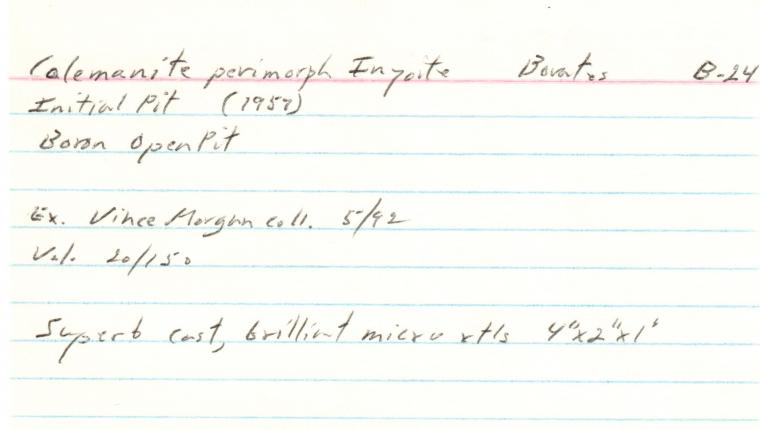 Colemanite perimorph Inyoite Borates B-24
Initial Pit (1957)
Boron Open Pit
Ex. Vince Morgan coll. 5/92
Val. 20/150
Superb cast, brilliant micro xtls 4"x2"x1"